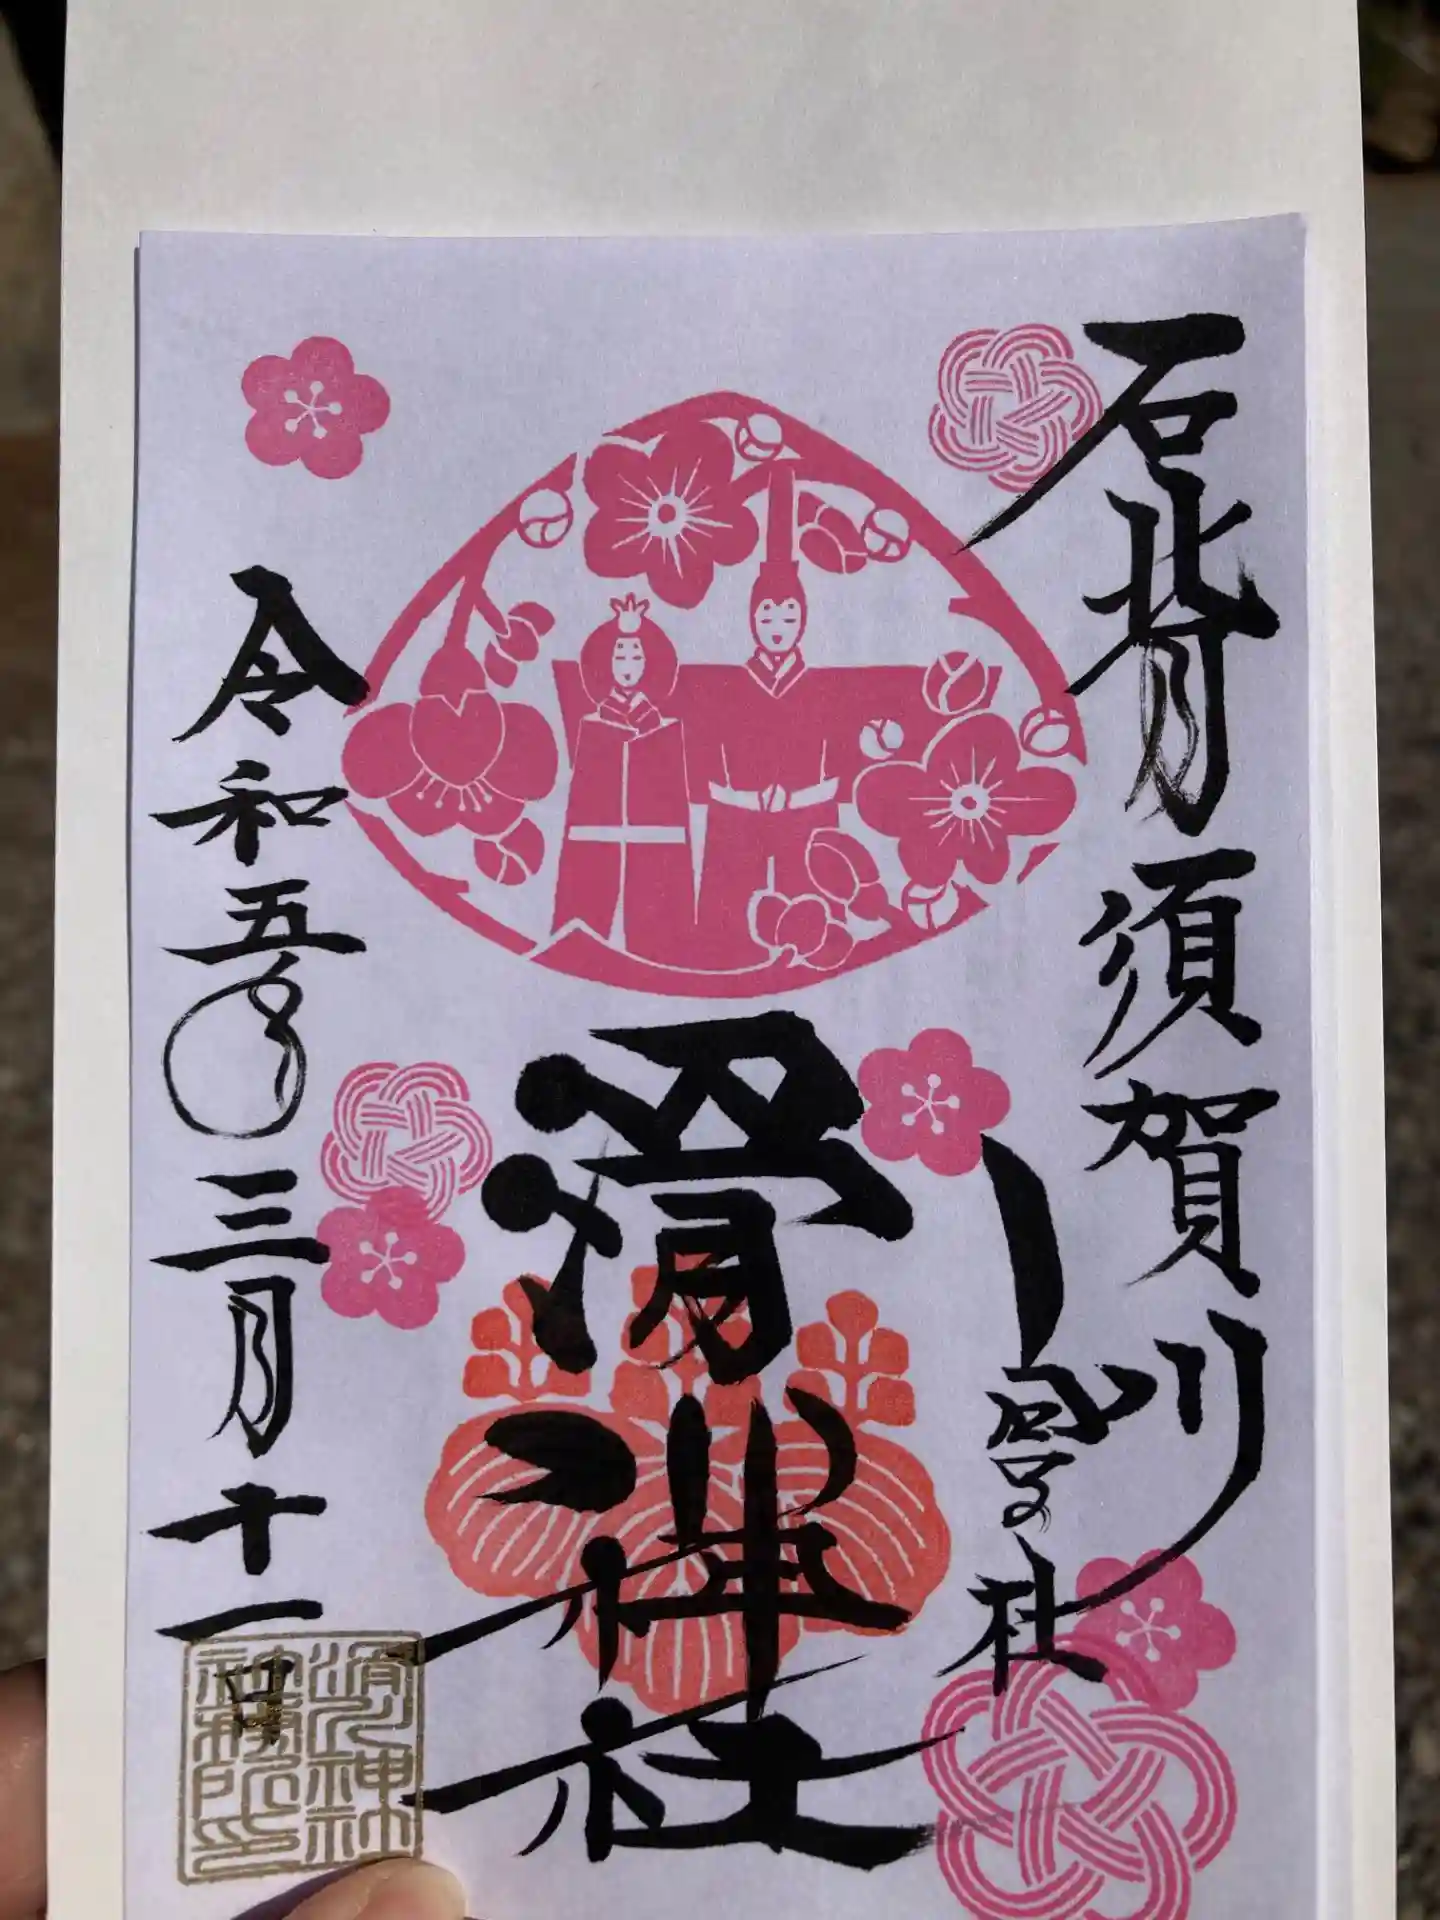 石背須賀川
宮の社
滑川神社
令和五年三月十一日
滑川神社
社務所印